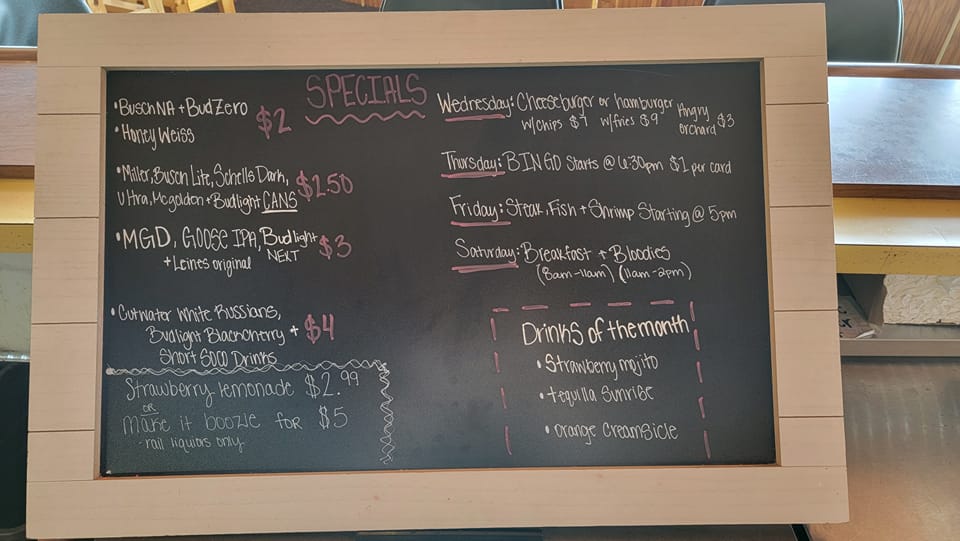 SPECIALS
• Busch NA + Bud Zero
• Honey Weiss
$2
• Miller, Busch Lite, Schells Dark,
Ultra, Mcgolden + Budlight CANS
$2.50
• MGD, GOOSE IPA, Budlight NEXT
+ Leines original
$3
• Cutwater White Russians,
Budlight Blackcherry +
Short SOCO Drinks
$4
Strawberry lemonade $2.99
OR
make it boozie for $5
- rail liquors only
Wednesday: Cheeseburger or hamburger Angry
w/chips $7 w/fries $9 orchard $3
Thursday: BINGO Starts @ 6:30pm $1 per card
Friday: Steak, Fish + Shrimp Starting @ 5pm
Saturday: Breakfast + Bloodies
(8am-11am) (11am-2pm)
Drinks of the month
• Strawberry mojito
• tequilla sunrise
• orange creamsicle